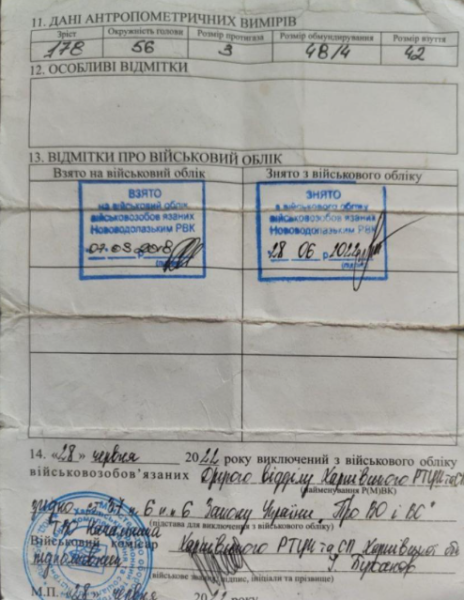 11. ДАНІ АНТРОПОМЕТРИЧНИХ ВИМІРІВ
Зріст Окружність голови Розмір протигаза Розмір обмундирування Розмір взуття
178 56 3 48/4 42
12. ОСОБЛИВІ ВІДМІТКИ
13. ВІДМІТКИ ПРО ВІЙСЬКОВИЙ ОБЛІК
Взято на військовий облік Знято з військового обліку
ВЗЯТО
на військовий облік
військовозобов'язаних
Нововодолазьким РВК
07.03.2018 р.
ЗНЯТО
з військового обліку
військовозобов'язаних
Нововодолазьким РВК
28 06 р 2022
14. «28» червня 2022 року виключений з військового обліку
військовозобов'язаних Другого відділу Харківського РТЦК та СП
(найменування Р(М)ВК)
згідно ст 37 п 6 п п 6 Закону України "Про ВО і ВС"
(підстава для виключення з військового обліку)
ТВО Начальника
Військовий комісар Харківського РТЦК та СП Харківської обл
підполковник
(військове звання, підпис, ініціали та прізвище)
М.П. «28» червня